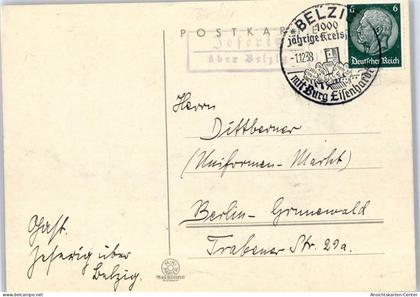 POSTKAR
Jeserig
über Belzig
BELZI
1000
jährige Kreis
-1.12.38
mit Burg Eisenhardt
6
6
Deutsches Reich
Herrn
Dittberner
(Uniformen-Markt)
Berlin-Grunewald
Trabener Str. 29a.
Jeserig über
Belzig.
Ansichtskarten-Center